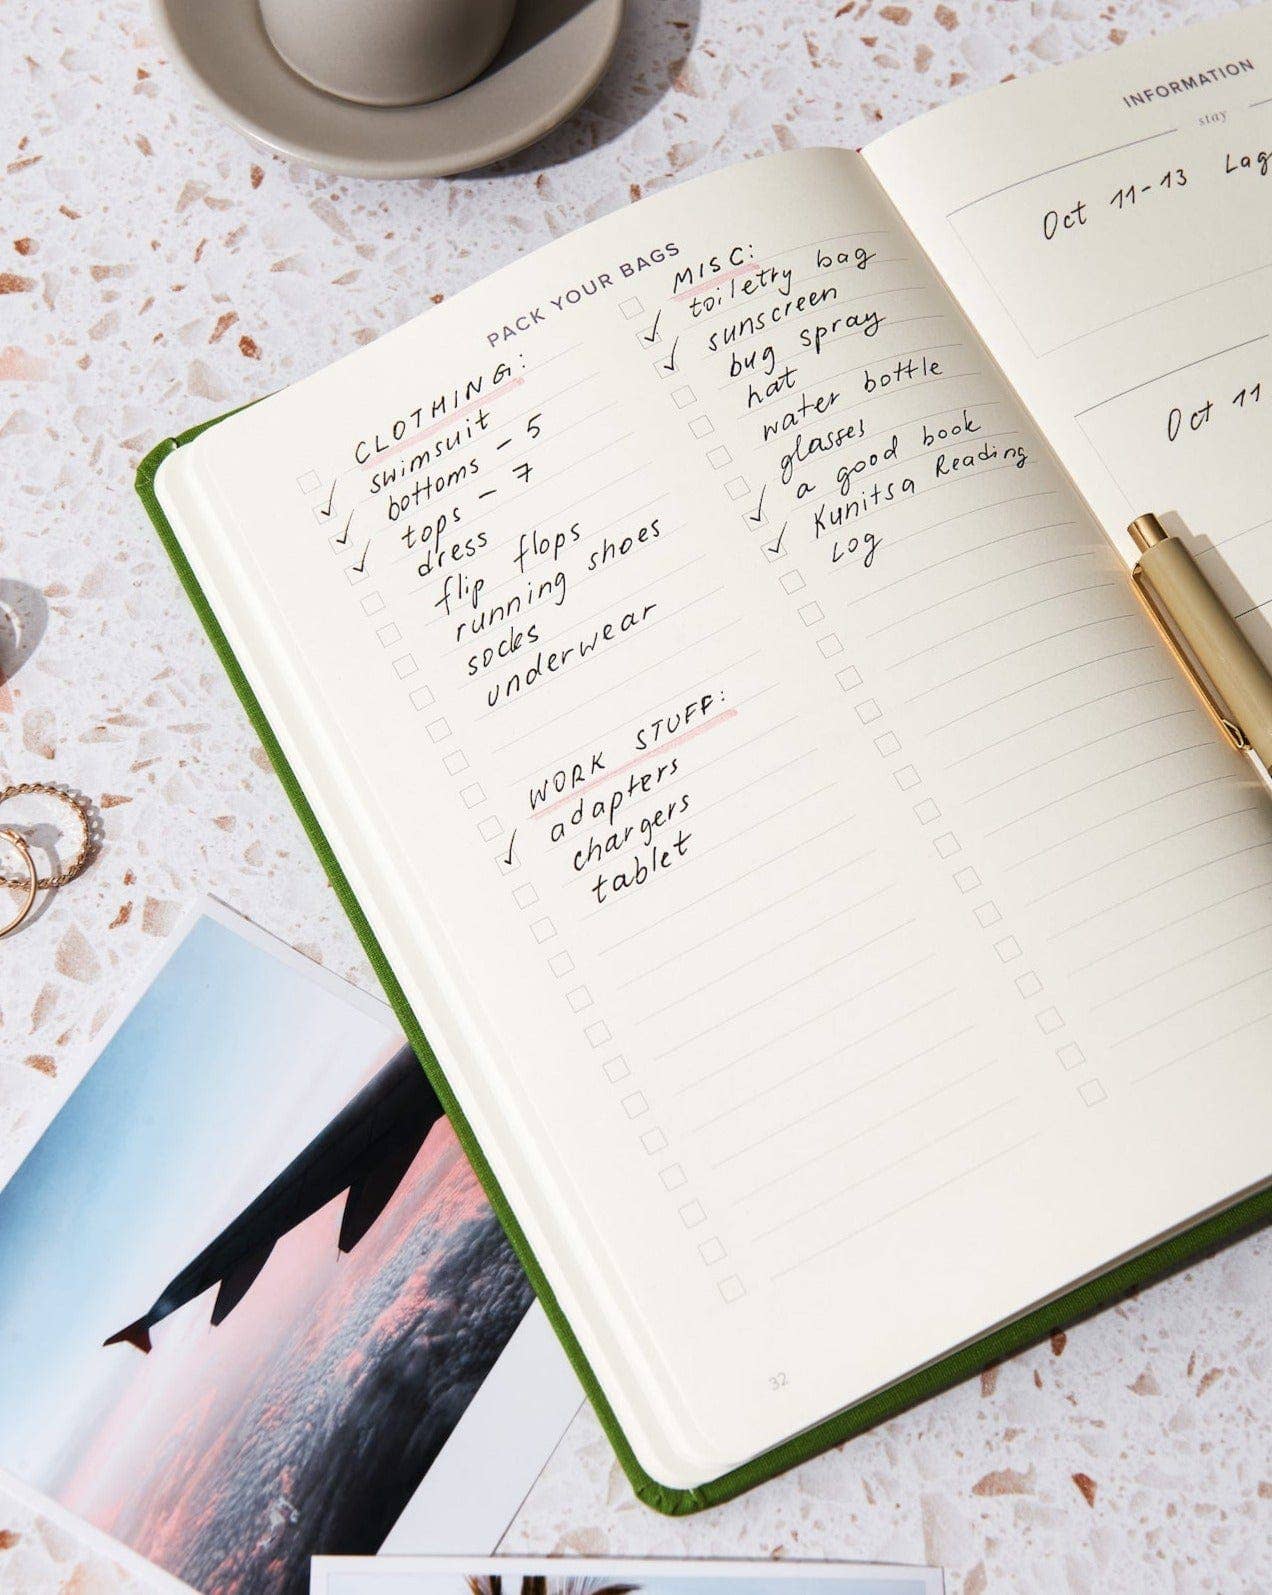 PACK YOUR BAGS
CLOTHING:
swimsuit
bottoms - 5
tops - 7
dress
flip flops
running shoes
socks
underwear
WORK STUFF:
adapters
chargers
tablet
MISC:
toiletry bag
sunscreen
bug spray
hat
water bottle
glasses
a good book
Kunitsa Reading
Log
32
INFORMATION
stay
Oct 11-13 Lag
Oct 11